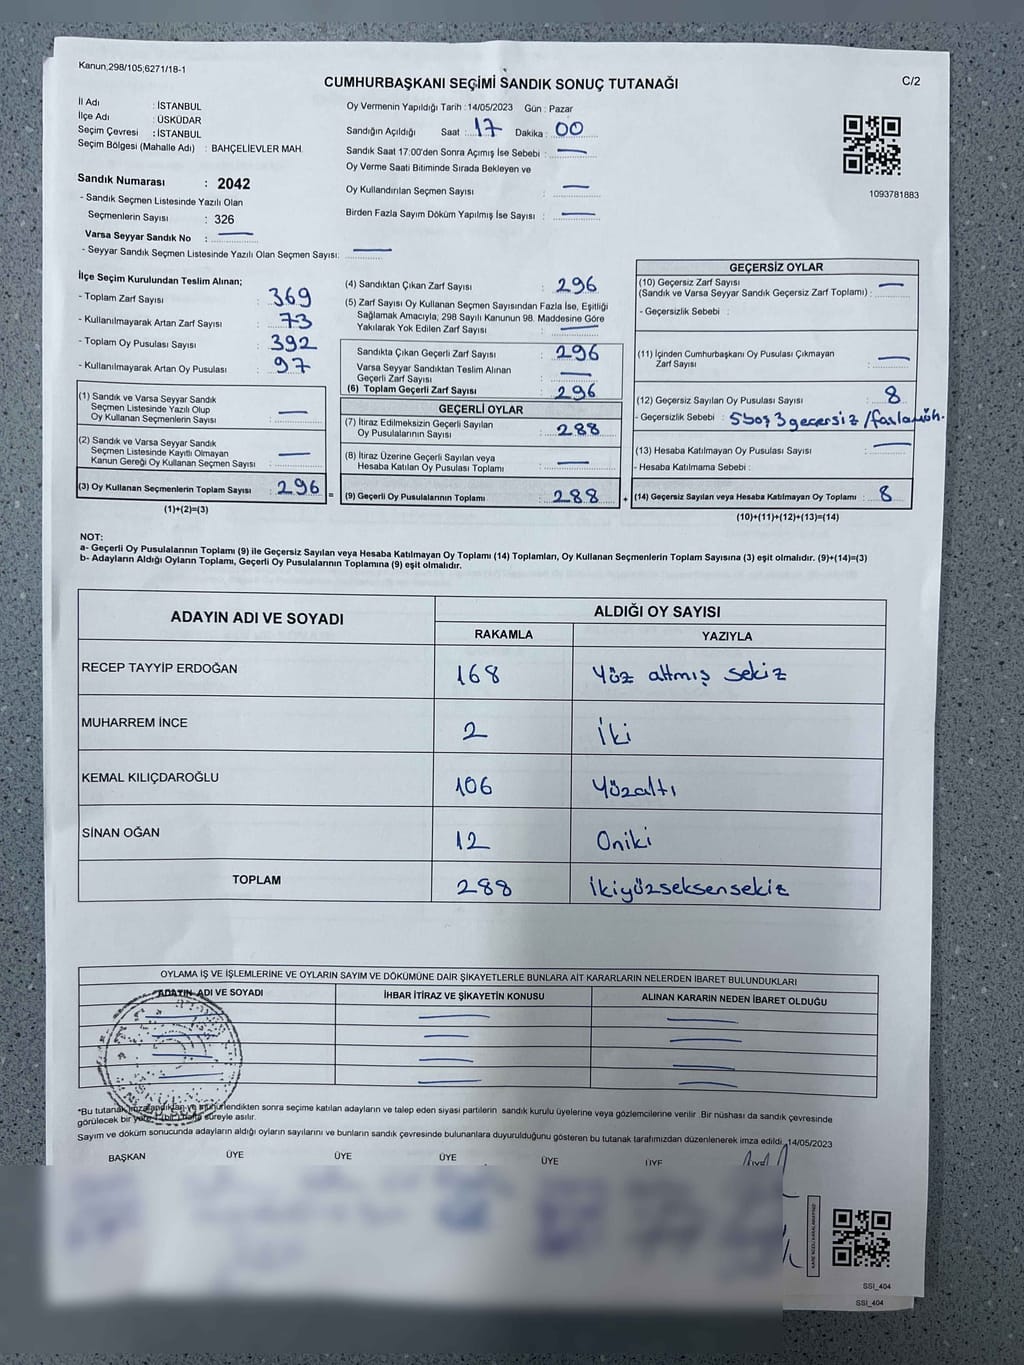 Kanun,298/105;6271/18-1
CUMHURBAŞKANI SEÇİMİ SANDIK SONUÇ TUTANAĞI
C/2
İl Adı : İSTANBUL
İlçe Adı : ÜSKÜDAR
Seçim Çevresi : İSTANBUL
Seçim Bölgesi (Mahalle Adı) : BAHÇELİEVLER MAH.
Oy Vermenin Yapıldığı Tarih : 14/05/2023 Gün : Pazar
Sandığın Açıldığı Saat : 17 Dakika : 00
Sandık Saat 17:00'den Sonra Açımış İse Sebebi : —
Oy Verme Saati Bitiminde Sırada Bekleyen ve
Oy Kullandırılan Seçmen Sayısı : —
Birden Fazla Sayım Döküm Yapılmış İse Sayısı : —
1093781883
Sandık Numarası : 2042
- Sandık Seçmen Listesinde Yazılı Olan
Seçmenlerin Sayısı : 326
Varsa Seyyar Sandık No : —
- Seyyar Sandık Seçmen Listesinde Yazılı Olan Seçmen Sayısı: —
İlçe Seçim Kurulundan Teslim Alınan;
- Toplam Zarf Sayısı : 369
- Kullanılmayarak Artan Zarf Sayısı : 73
- Toplam Oy Pusulası Sayısı : 392
- Kullanılmayarak Artan Oy Pusulası : 97
(1) Sandık ve Varsa Seyyar Sandık
Seçmen Listesinde Yazılı Olup
Oy Kullanan Seçmenlerin Sayısı : —
(2) Sandık ve Varsa Seyyar Sandık
Seçmen Listesinde Kayıtlı Olmayan
Kanun Gereği Oy Kullanan Seçmen Sayısı : —
(3) Oy Kullanan Seçmenlerin Toplam Sayısı : 296 =
(1)+(2)=(3)
(4) Sandıktan Çıkan Zarf Sayısı : 296
(5) Zarf Sayısı Oy Kullanan Seçmen Sayısından Fazla İse, Eşitliği
Sağlamak Amacıyla; 298 Sayılı Kanunun 98. Maddesine Göre
Yakılarak Yok Edilen Zarf Sayısı : —
Sandıkta Çıkan Geçerli Zarf Sayısı : 296
Varsa Seyyar Sandıktan Teslim Alınan
Geçerli Zarf Sayısı : —
(6) Toplam Geçerli Zarf Sayısı : 296
GEÇERLİ OYLAR
(7) İtiraz Edilmeksizin Geçerli Sayılan
Oy Pusulalarının Sayısı : 288
(8) İtiraz Üzerine Geçerli Sayılan veya
Hesaba Katılan Oy Pusulası Toplamı : —
(9) Geçerli Oy Pusulalarının Toplamı : 288 +
GEÇERSİZ OYLAR
(10) Geçersiz Zarf Sayısı
(Sandık ve Varsa Seyyar Sandık Geçersiz Zarf Toplamı) : —
- Geçersizlik Sebebi :
(11) İçinden Cumhurbaşkanı Oy Pusulası Çıkmayan
Zarf Sayısı : —
(12) Geçersiz Sayılan Oy Pusulası Sayısı : 8
- Geçersizlik Sebebi : 5boş 3geçersiz/fazlamüh.
(13) Hesaba Katılmayan Oy Pusulası Sayısı : —
- Hesaba Katılmama Sebebi :
(14) Geçersiz Sayılan veya Hesaba Katılmayan Oy Toplamı : 8
(10)+(11)+(12)+(13)=(14)
NOT:
a- Geçerli Oy Pusulalarının Toplamı (9) ile Geçersiz Sayılan veya Hesaba Katılmayan Oy Toplamı (14) Toplamları, Oy Kullanan Seçmenlerin Toplam Sayısına (3) eşit olmalıdır. (9)+(14)=(3)
b- Adayların Aldığı Oyların Toplamı, Geçerli Oy Pusulalarının Toplamına (9) eşit olmalıdır.
ADAYIN ADI VE SOYADI ALDIĞI OY SAYISI
RAKAMLA YAZIYLA
RECEP TAYYİP ERDOĞAN 168 Yüz altmış sekiz
MUHARREM İNCE 2 İki
KEMAL KILIÇDAROĞLU 106 Yüzaltı
SİNAN OĞAN 12 Oniki
TOPLAM 288 İkiyüzseksensekiz
OYLAMA İŞ VE İŞLEMLERİNE VE OYLARIN SAYIM VE DÖKÜMÜNE DAİR ŞİKAYETLERLE BUNLARA AİT KARARLARIN NELERDEN İBARET BULUNDUKLARI
ADAYIN ADI VE SOYADI İHBAR İTİRAZ VE ŞİKAYETİN KONUSU ALINAN KARARIN NEDEN İBARET OLDUĞU
*Bu tutanak imzalandıktan ve mühürlendikten sonra seçime katılan adayların ve talep eden siyasi partilerin sandık kurulu üyelerine veya gözlemcilerine verilir. Bir nüshası da sandık çevresinde
görülecek bir yere 1 (bir) hafta süreyle asılır.
Sayım ve döküm sonucunda adayların aldığı oyların sayılarını ve bunların sandık çevresinde bulunanlara duyurulduğunu gösteren bu tutanak tarafımızdan düzenlenerek imza edildi. 14/05/2023
BAŞKAN ÜYE ÜYE ÜYE ÜYE ÜYE
SSI_404
SSI_404